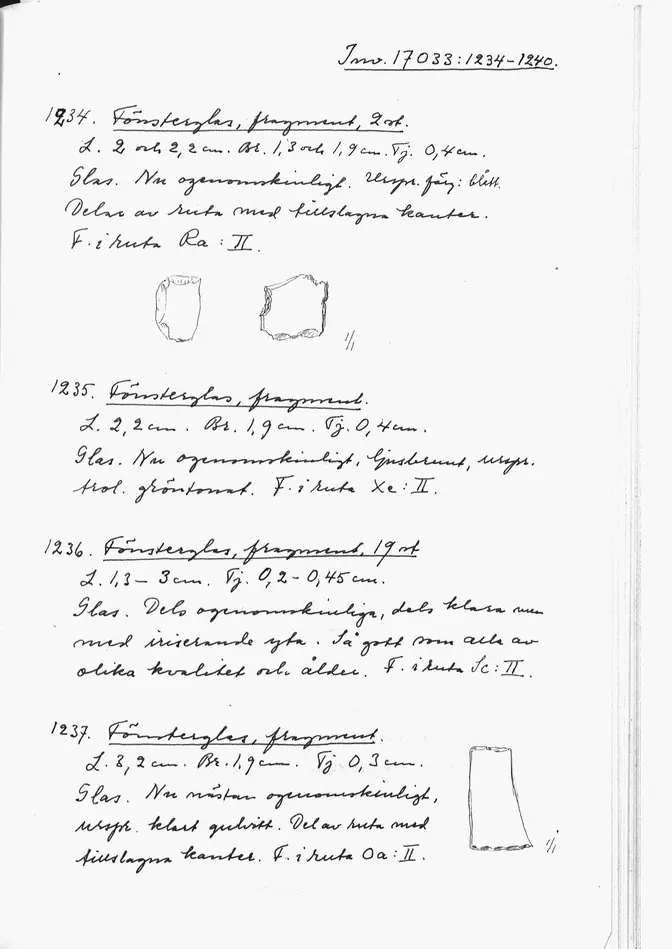 Inv. 17033:1234-1240.
1234. Fönsterglas, fragment, 2 st.
L. 2 och 2,2 cm. Br. 1,3 och 1,9 cm. Tj. 0,4 cm.
Glas. Nu ogenomskinligt. Urspr. färg: blått.
Delar av ruta med tillslagna kanter.
F. i ruta Ra : II.
1/1
1235. Fönsterglas, fragment.
L. 2,2 cm. Br. 1,9 cm. Tj. 0,4 cm.
Glas. Nu ogenomskinligt, ljusbrunt, urspr.
trol. gröntonat. F. i ruta Xc : II.
1236. Fönsterglas, fragment, 19 st
L. 1,3 – 3 cm. Tj. 0,2 – 0,45 cm.
Glas. Dels ogenomskinliga, dels klara men
med iriserande yta. Så gott som alla av
olika kvalitet och ålder. F. i ruta Sc : II.
1237. Fönsterglas, fragment.
L. 3,2 cm. Br. 1,9 cm. Tj 0,3 cm.
Glas. Nu nästan ogenomskinligt,
urspr. klart gulvitt. Del av ruta med
tillslagna kanter. F. i ruta Oa : II.
1/1